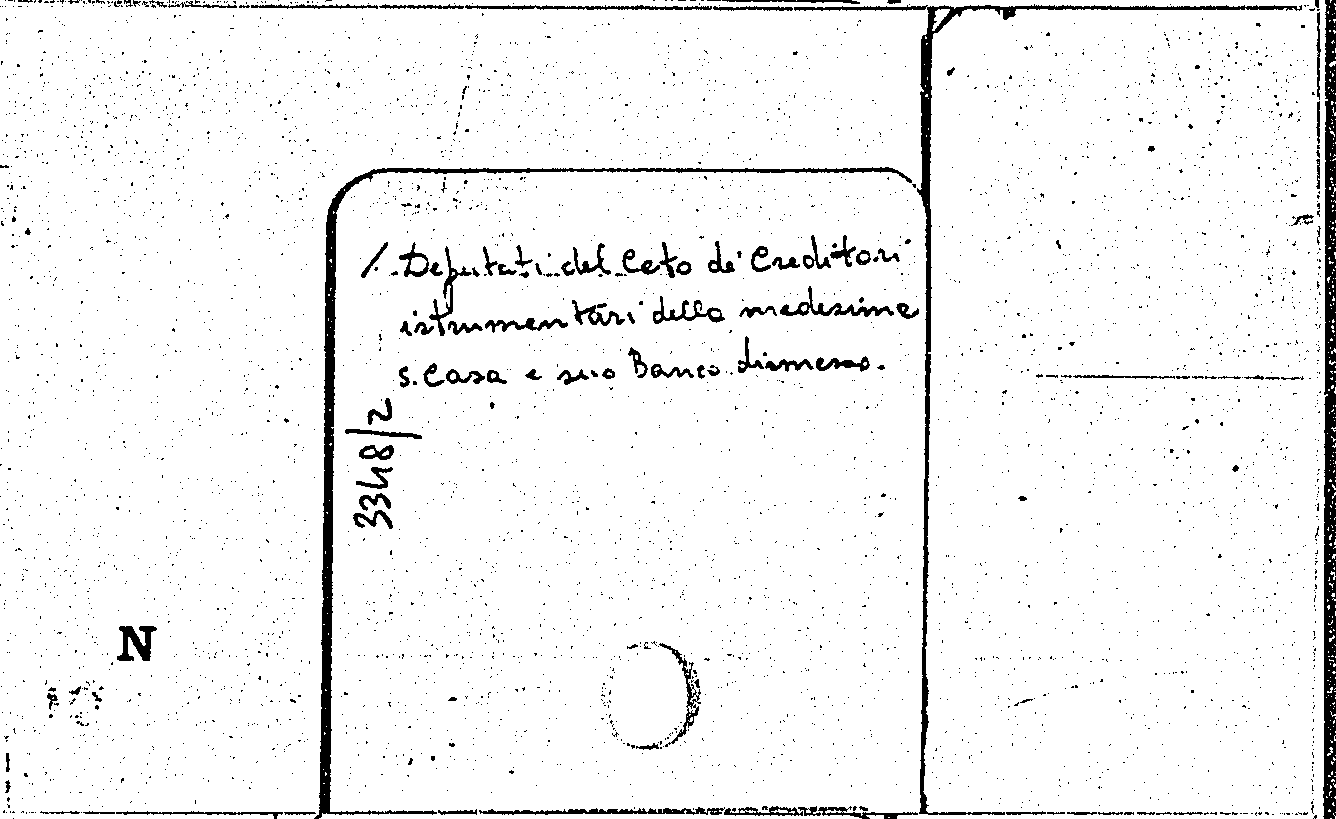 /. Deputati del Ceto de' Creditori
istrumentari della medesima
s. Casa e suo Banco dismesso.
3348/2
N